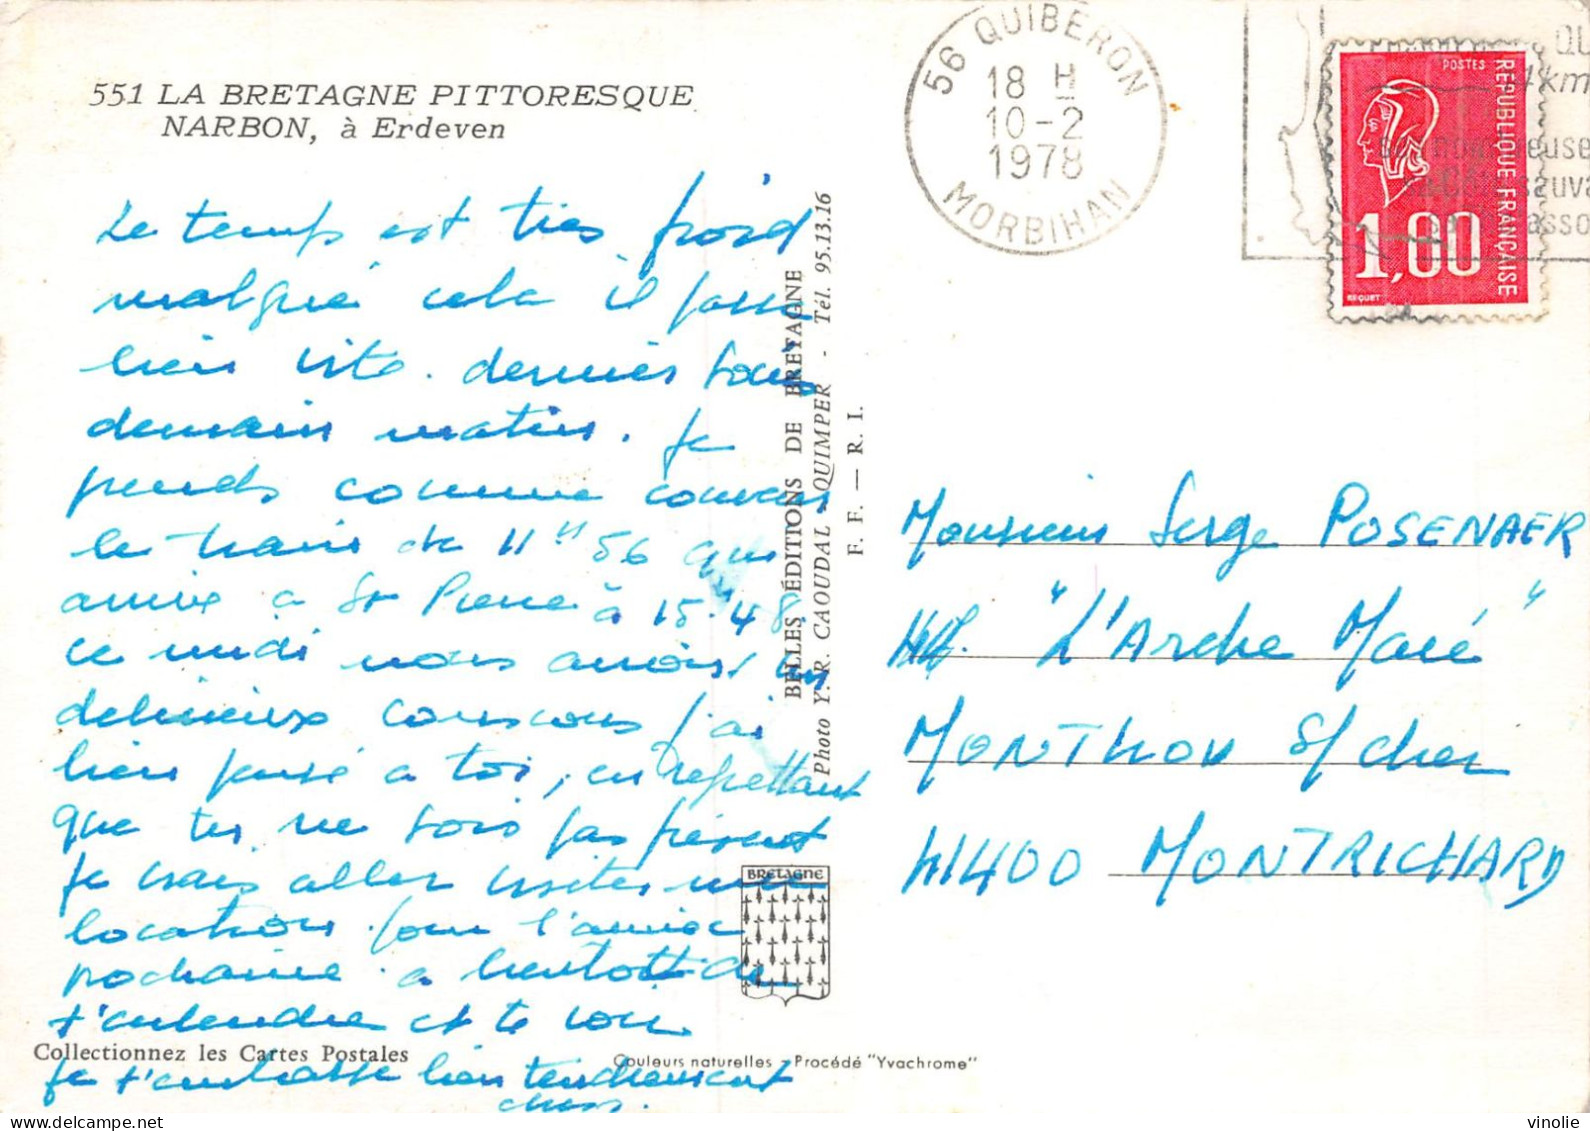 551 LA BRETAGNE PITTORESQUE
NARBON, à Erdeven
Le temps est très froid
malgré cela il passe
bien vite. dernier soir
demain matin. Je
prends comme convenu
le train de 11 H 56 qui
arrive à St Pierre à 15 H 48.
ce midi nous avons eu un
délicieux couscous j'ai
bien pensé à toi, en regrettant
que tu ne sois pas présent
Je vais aller visiter une
location pour l'année
prochaine. à bientôt de
t'entendre et te voir
Je t'embrasse bien tendrement
Collectionnez les Cartes Postales
BELLES ÉDITIONS DE BRETAGNE
Photo Y. R. CAOUDAL - QUIMPER - Tél. 95.13.16
F. F. — R. I.
BRETAGNE
Couleurs naturelles - Procédé "Yvachrome"
56 QUIBERON
18 H
10-2
1978
MORBIHAN
QU
km
POSTES
REPUBLIQUE FRANÇAISE
1,00
BEQUET
Monsieur Serge POSENAER
"L'Arche Maré"
MONTHOU S/cher
41400 MONTRICHARD
vinolie